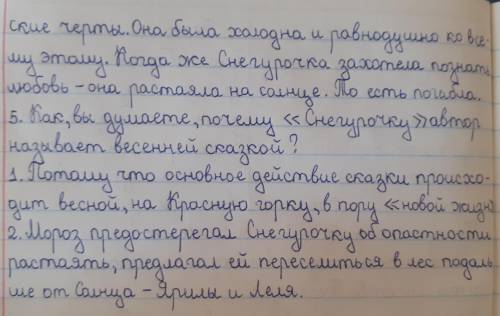 ские черты. Она была холодна и равнодушна ко все-
му этому. Когда же Снегурочка захотела познать
любовь - она растаяла на солнце. То есть погибла.
5. Как, вы думаете, почему «Снегурочку» автор
называет весенней сказкой?
1. Потому что основное действие сказки происхо-
дит весной, на Красную горку, в пору «новой жизни
2. Мороз предостерегал Снегурочку об опастности
растаять, предлагал ей переселиться в лес подаль
ше от Солнца - Ярилы и Леля.